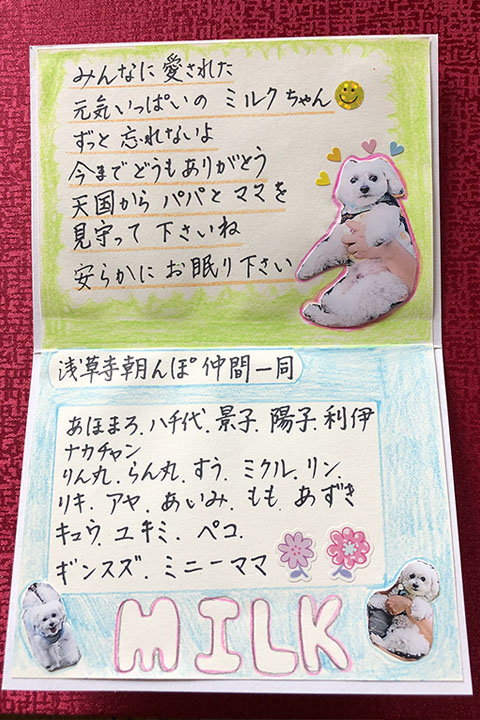 みんなに愛された
元気いっぱいの ミルクちゃん
ずっと 忘れないよ
今まで どうも ありがとう
天国から パパと ママを
見守って 下さいね
安らかに お眠り下さい
浅草寺朝んぽ 仲間一同
あほまろ.ハチ代.景子.陽子.利伊
ナカチャン
りん丸.らん丸.すう.ミクル.リン.
リキ.アヤ.あいみ.もも.あずき
キュウ.ユキミ.ペコ.
ギンスズ.ミニーママ
MILK